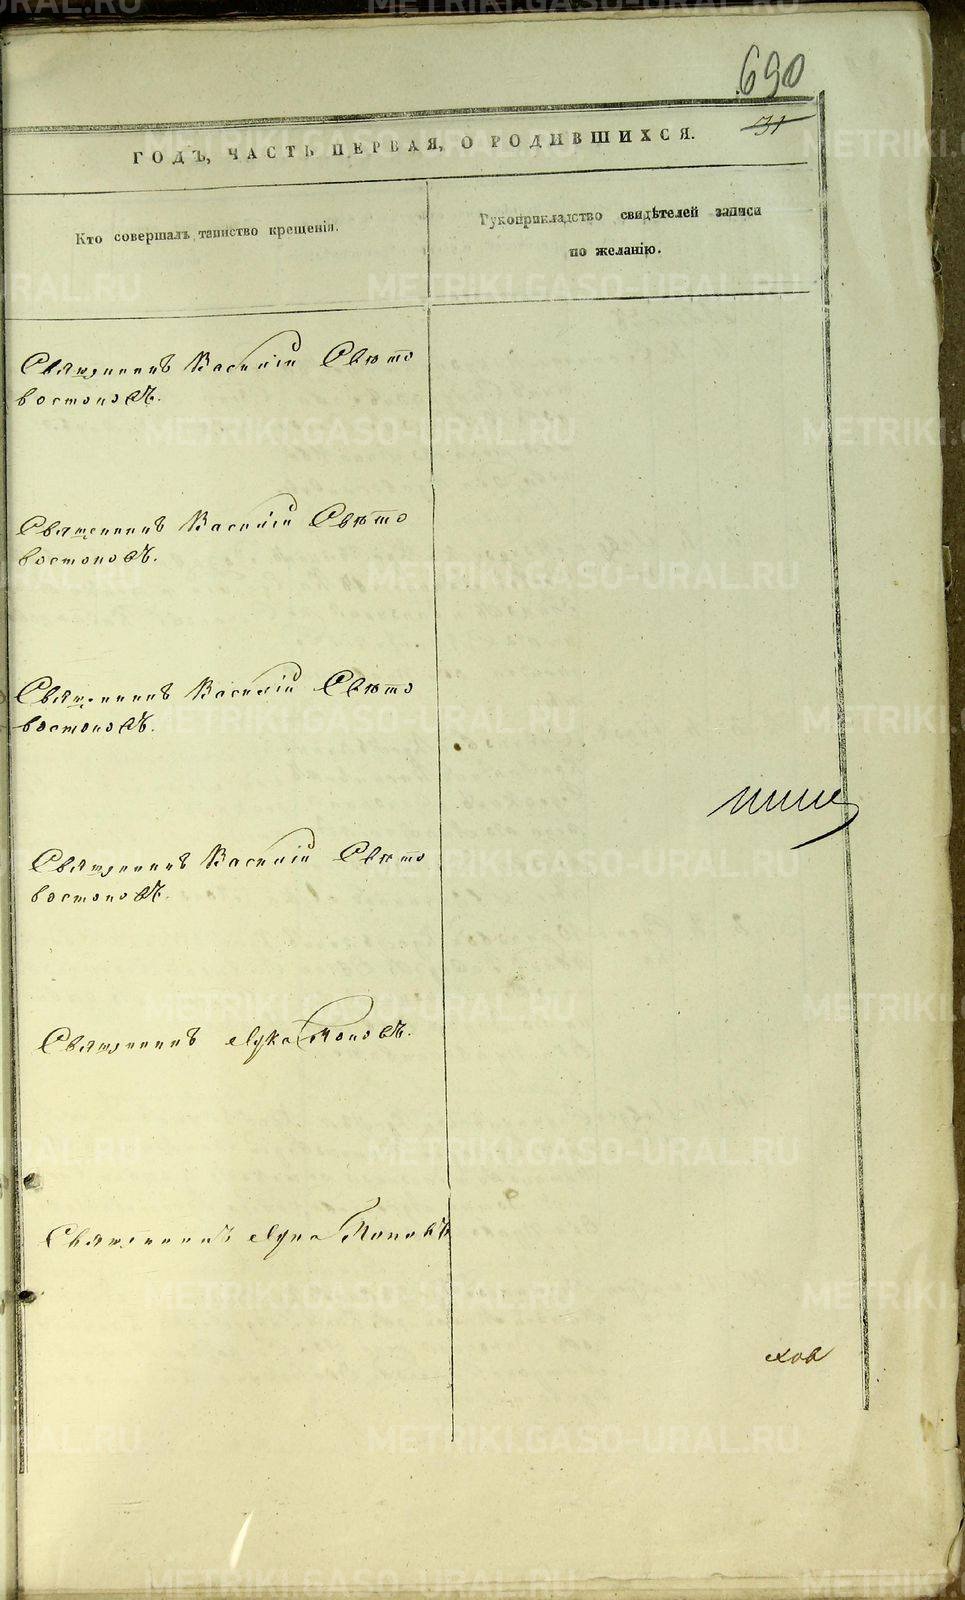 690
31
ГОДЪ, ЧАСТЬ ПЕРВАЯ, О РОДИВШИХСЯ.
Кто совершалъ таинство крещенія.
Рукоприкладство свидѣтелей записи
по желанію.
Священникъ Василій Свѣто
востоковъ.
Священникъ Василій Свѣто
востоковъ.
Священникъ Василій Свѣто
востоковъ.
Священникъ Василій Свѣто
востоковъ.
Священникъ Лука Поповъ.
Священникъ Лука Поповъ
METRIKI.GASO-URAL.RU